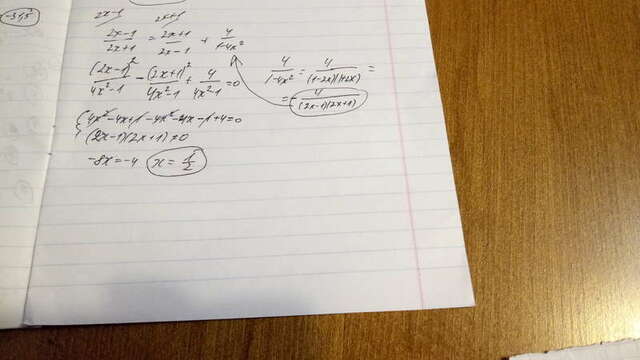 -31,5²
2x-1 2x+1
(2x-1)/(2x+1) = (2x+1)/(2x-1) + 4/(1-4x²)
4/(1-4x²) = 4/((1-2x)(1+2x)) =
= - 4/((2x-1)(2x+1))
(2x-1)²/(4x²-1) - (2x+1)²/(4x²-1) + 4/(4x²-1) = 0
{ 4x²-4x+1-4x²-4x-1+4=0
(2x-1)(2x+1)≠0
-8x=-4 x=1/2